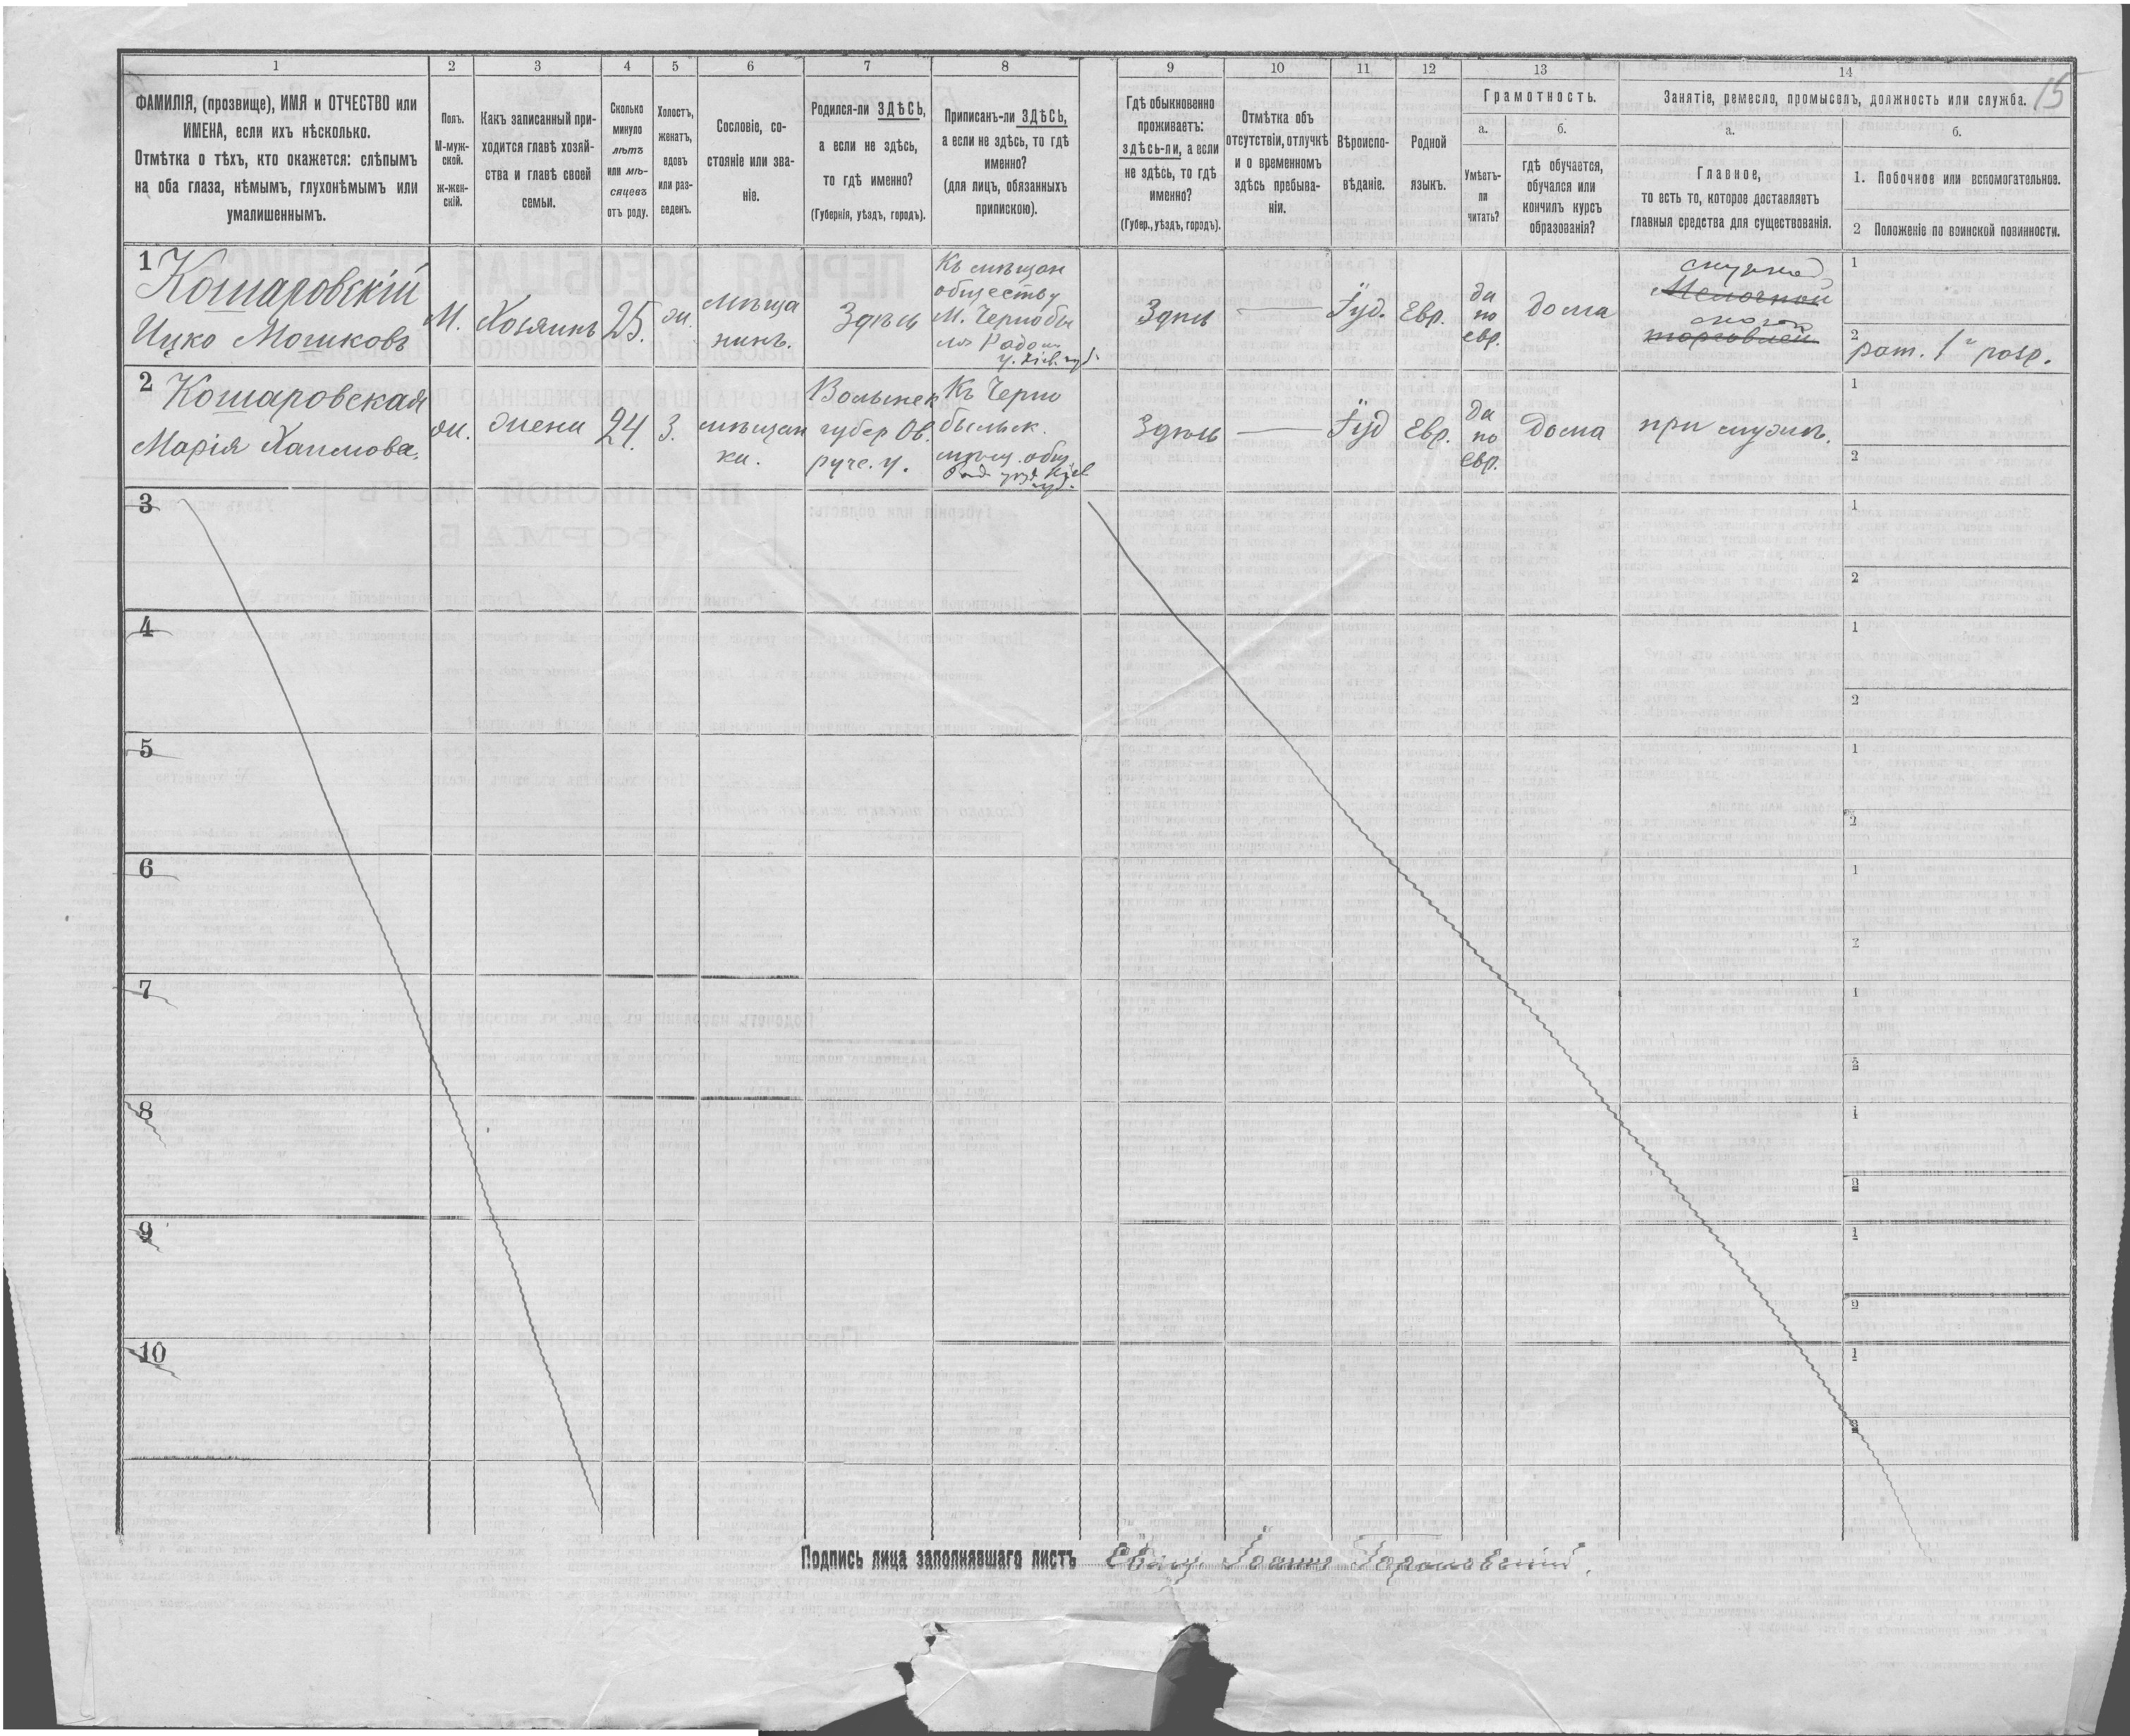 1 2 3 4 5 6 7 8 9 10 11 12 13 14
15
ФАМИЛІЯ, (прозвище), ИМЯ и ОТЧЕСТВО или
ИМЕНА, если ихъ нѣсколько.
Отмѣтка о тѣхъ, кто окажется: слѣпымъ
на оба глаза, нѣмымъ, глухонѣмымъ или
умалишеннымъ.
Полъ.
М-муж-
ской.
ж-жен-
скій.
Какъ записанный при-
ходится главѣ хозяй-
ства и главѣ своей
семьи.
Сколько
минуло
лѣтъ
или мѣ-
сяцевъ
отъ роду.
Холостъ,
женатъ,
вдовъ
или раз-
веденъ.
Сословіе, со-
стояніе или зва-
ніе.
Родился-ли ЗДѢСЬ,
а если не здѣсь,
то гдѣ именно?
(Губернія, уѣздъ, городъ).
Приписанъ-ли ЗДѢСЬ,
а если не здѣсь, то гдѣ
именно?
(для лицъ, обязанныхъ
припискою).
Гдѣ обыкновенно
проживаетъ:
здѣсь-ли, а если
не здѣсь, то гдѣ
именно?
(Губер., уѣздъ, городъ).
Отмѣтка объ
отсутствіи, отлучкѣ
и о временномъ
здѣсь пребыва-
ніи.
Вѣроиспо-
вѣданіе.
Родной
языкъ.
Грамотность.
а.
Умѣетъ-
ли
читать?
б.
гдѣ обучается,
обучался или
кончилъ курсъ
образованія?
Занятіе, ремесло, промыселъ, должность или служба.
а.
Главное,
то есть то, которое доставляетъ
главныя средства для существованія.
б.
1. Побочное или вспомогательное.
2 Положеніе по воинской повинности.
1
Кошаровскій
Ицко Мошковъ
М.
Хозяинъ
25.
ж.
мѣща
нинъ.
Здѣсь
Къ мѣщан
обществу
М. Чернобы
ля Радом
у. Кіев. губ.
Здѣсь
Іуд.
Евр.
да
по
евр.
дома
Мелочной
торговлей
1
2
рат. 1 разр.
2
Кошаровская
Марія Хаимова.
ж.
жена
24.
З.
мѣщан
ка.
Волынск
губер Ов.
руче. у.
Къ Черно
быльск.
мѣщ. общ
Рад. уѣз. Кіев
губ.
Здѣсь
Іуд
Евр.
да
по
евр.
Дома
при мужѣ.
1
2
3
1
2
4
1
2
5
1
2
6
1
2
7
1
2
8
1
2
9
1
2
10
1
2
Подпись лица заполнявшаго листъ